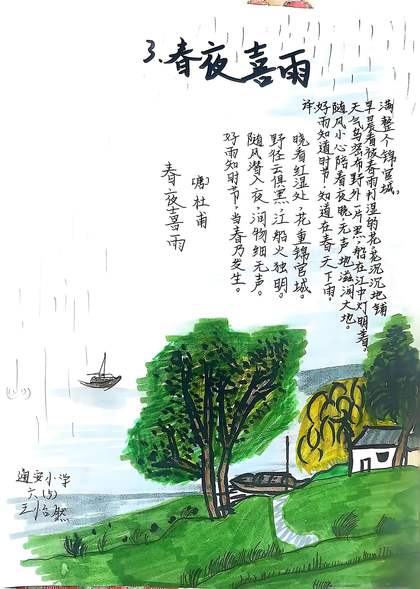 3.春夜喜雨
春夜喜雨
唐 杜甫
好雨知时节,当春乃发生。
随风潜入夜,润物细无声。
野径云俱黑,江船火独明。
晓看红湿处,花重锦官城。
译:
好雨知道时节,知道在春天下雨,
随风小心陪着春夜晚无声地滋润大地。
天气乌密布野外一片黑,船在江中灯明着,
早晨看被春雨打湿的花,花沉沉地铺
满整个锦官城。
通安小学
六(5)
王怡然